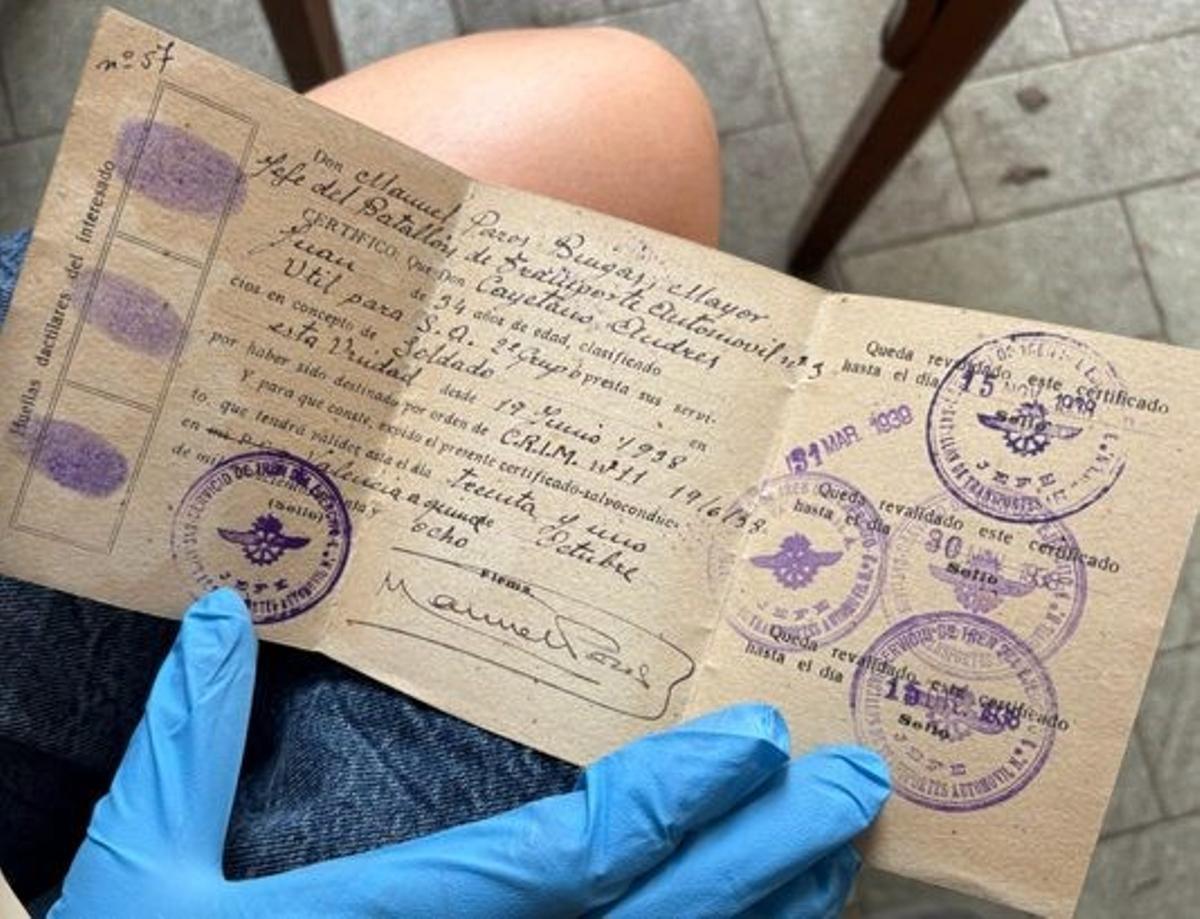 nº 57
Huellas dactilares del interesado
Don Manuel Pazos Bugas, Mayor
Jefe del Batallón de Transporte Automovil nº 3
CERTIFICO: Que Don Cayetano Andres
Juan de 34 años de edad, clasificado
Util para S. A. 2º Grupo presta sus servi-
cios en concepto de Soldado en
esta Unidad desde 19 Junio 1938
por haber sido destinado por orden de C.R.I.M. nº 11 19/6/38
Y para que conste, expido el presente certificado-salvoconduc-
to, que tendrá validez hasta el día Treinta y uno
en Valencia a quince de Octubre
de mil ocho
(Sello)
JEFE
Firma,
Manuel
Queda revalidado este certificado
hasta el día 15 NOV 1938
Sello
JEFE
31 MAR 1939
Queda revalidado este certificado
hasta el día 30
Sello
JEFE
Queda revalidado este certificado
hasta el día 15 1938
Sello
JEFE